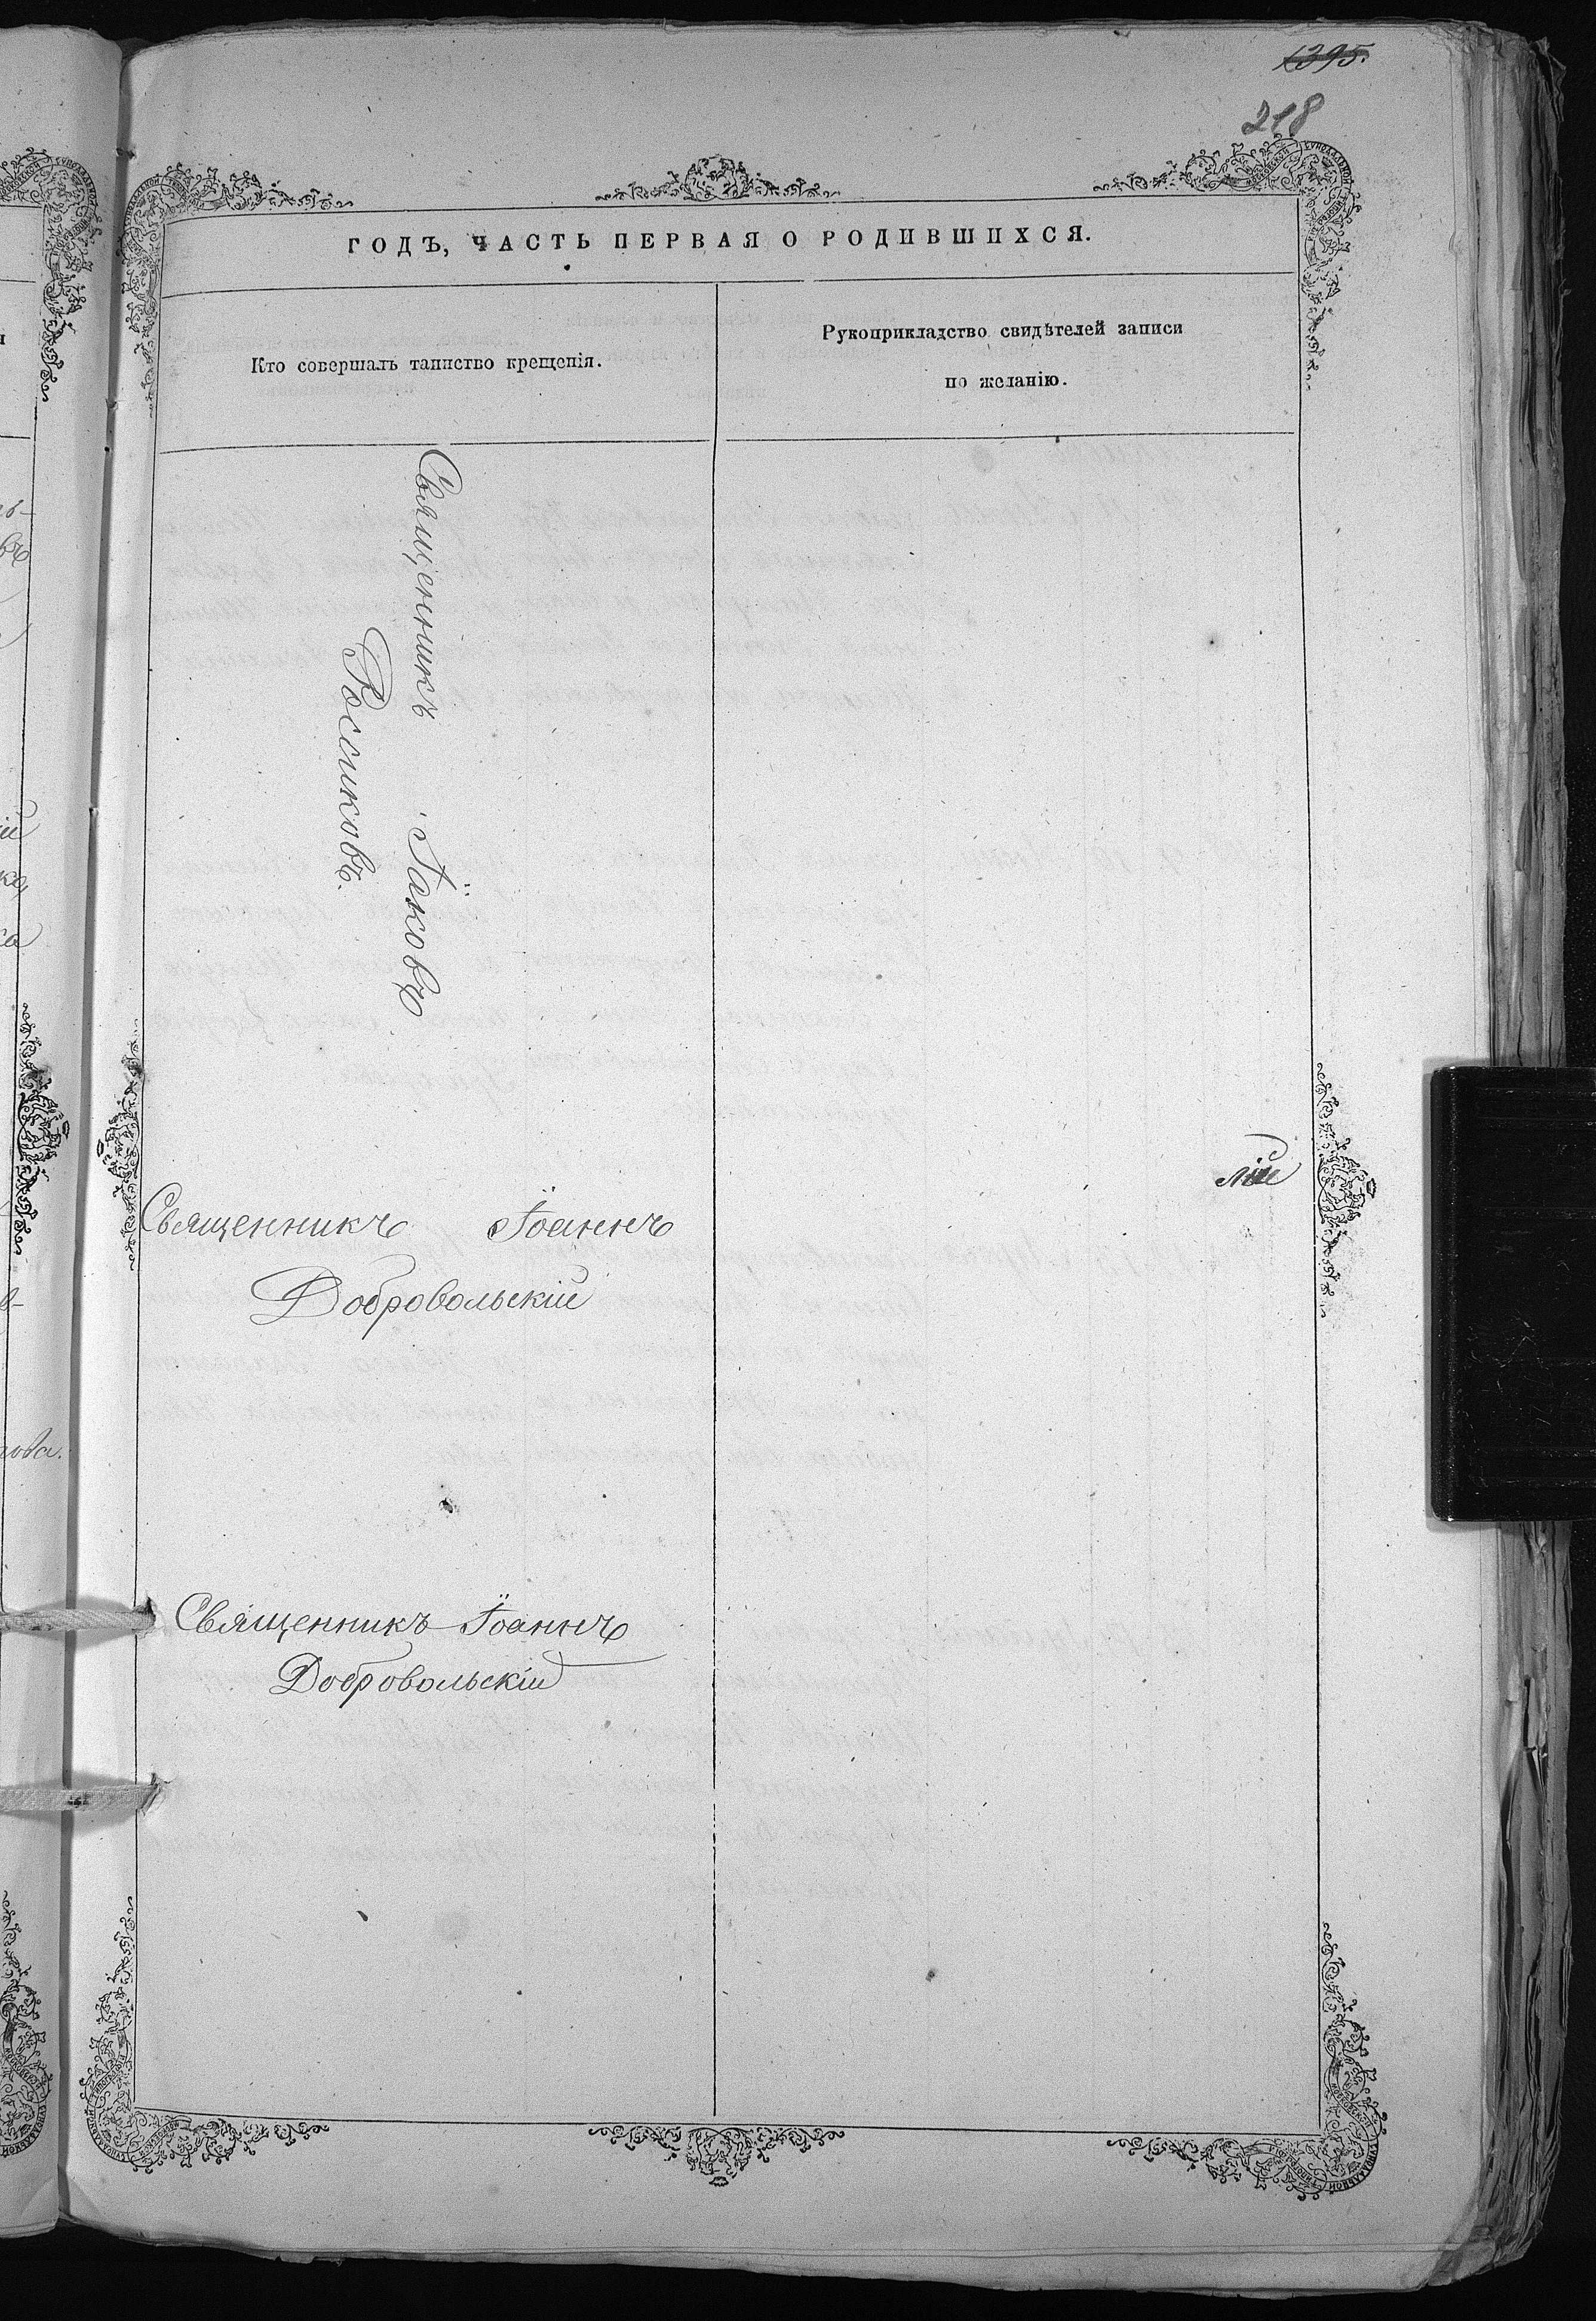 1395.
218
ГОДЪ, ЧАСТЬ ПЕРВАЯ О РОДИВШИХСЯ.
Кто совершалъ таинство крещенія.
Рукоприкладство свидѣтелей записи
по желанію.
Священникъ Іаковъ
Росликовъ.
Священникъ Іоаннъ
Добровольскій
Священникъ Іоаннъ
Добровольскій